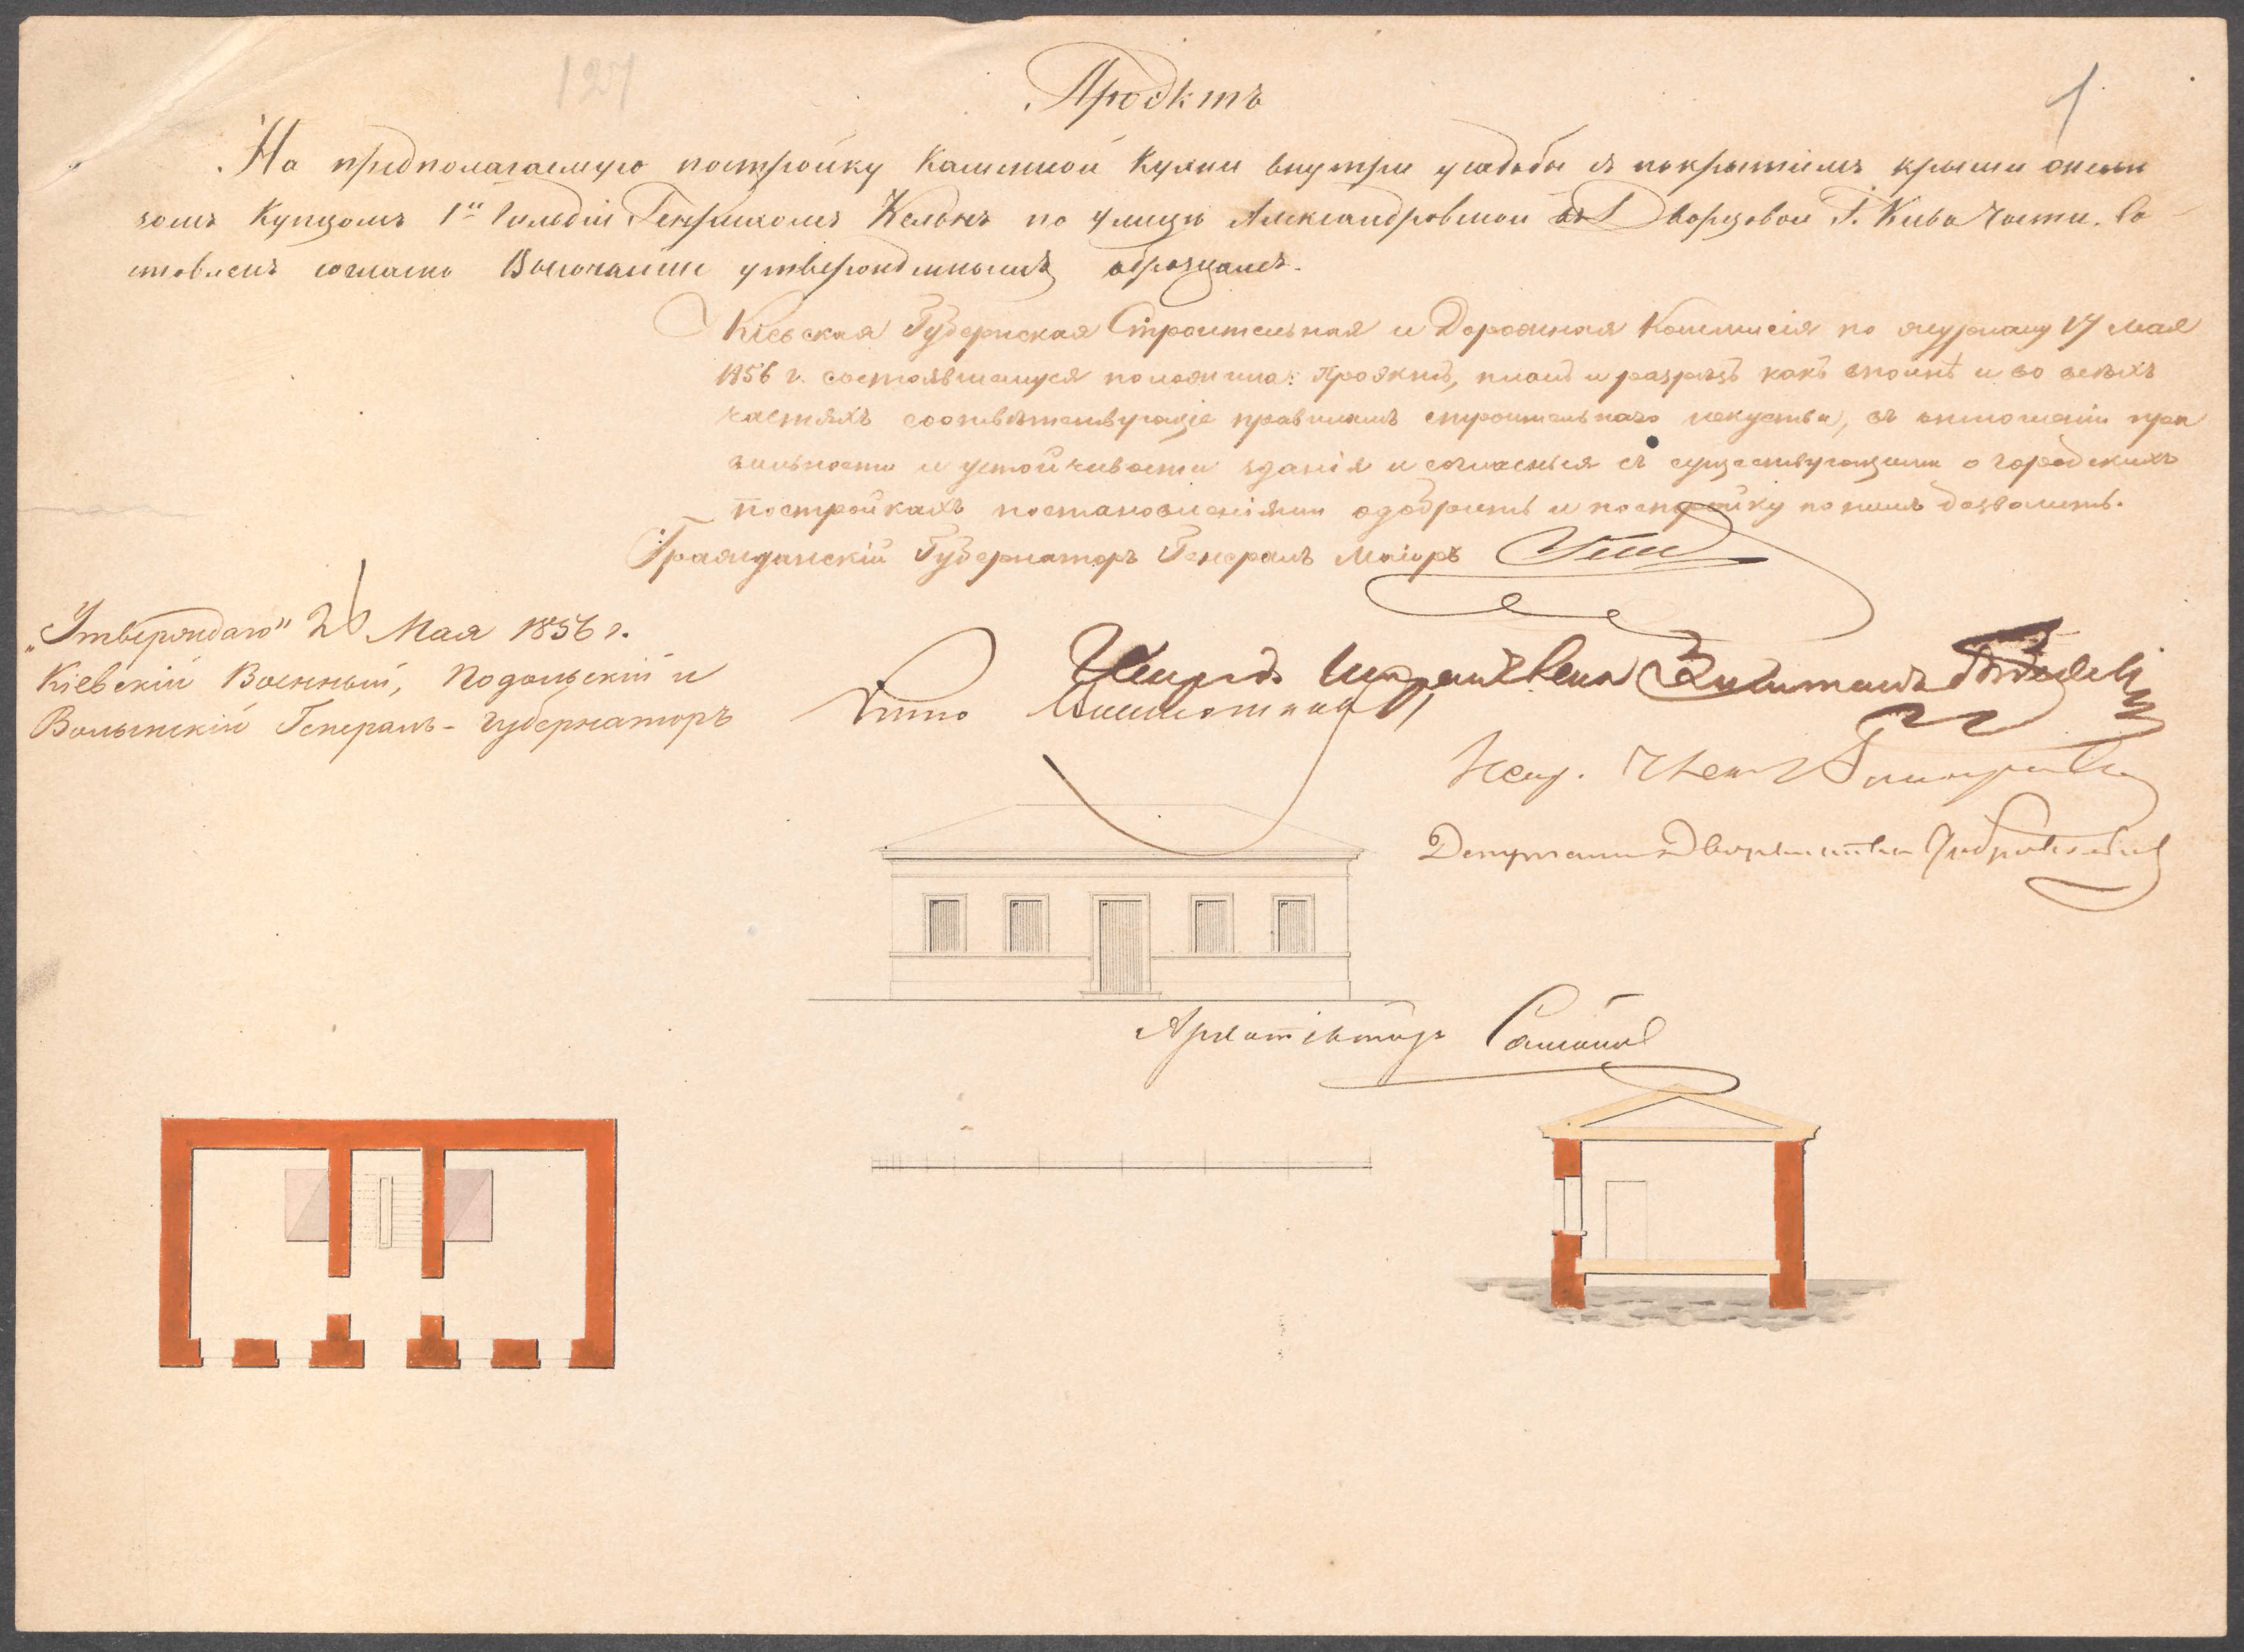 127
1
Проэктъ
На предполагаемую постройку Каменной Кухни внутри усадьбы съ покрытіемъ крыши
зомъ Купцомъ 1й Гильдіи Генрихомъ по улицѣ Александровской въ Дворцовой Г. Кіева Части. Со-
ставленъ согласно Высочайше утвержденнымъ образцамъ.
Кіевская Губернская Строительная и Дорожная Коммисія по журналу 17 Мая
1856 г. состоявшемуся положила: Проэктъ, планъ и разрѣзъ какъ вполнѣ и во всѣхъ
частяхъ соотвѣтствующіе правиламъ строительнаго искуства, въ отношеніи пра
вильности и устойчивости зданія и согласныя съ существующими о городскихъ
постройкахъ постановленіями одобрить и постройку по нимъ дозволить.
Гражданскій Губернаторъ Генералъ Маіоръ
„Утверждаю" 26 Мая 1856 г.
Кіевскій Военный, Подольскій и
Волынскій Генералъ-Губернаторъ
Депутатъ Дворянства
Архитекторъ